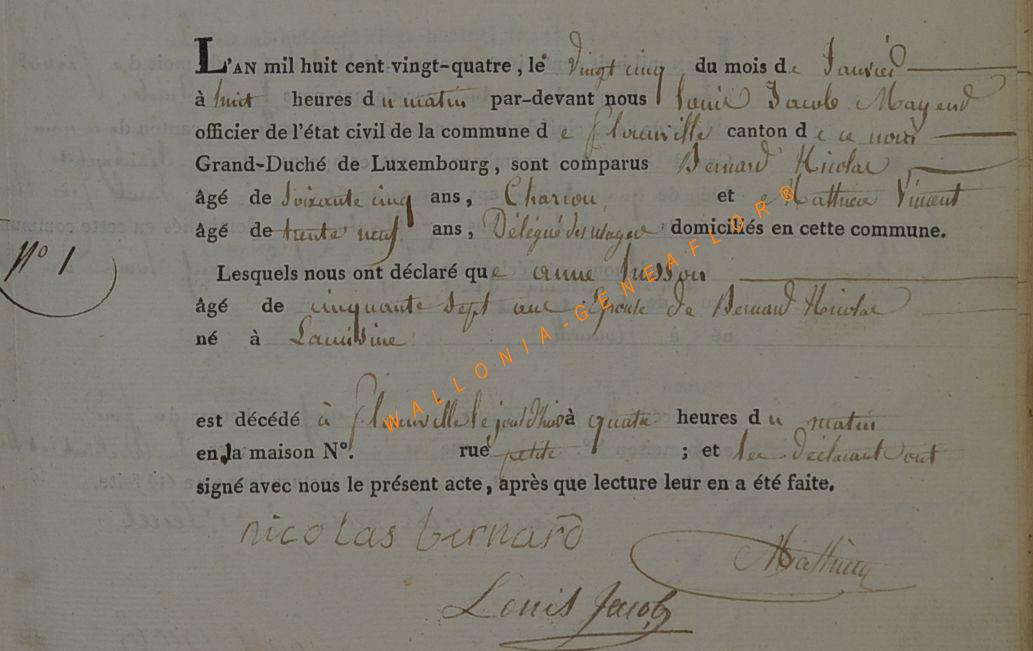 L'AN mil huit cent vingt-quatre, le Vingt cinq du mois de Janvier
à huit heures du matin par-devant nous Louis Jacob Mayeur
officier de l'état civil de la commune de florenville canton de ce nom
Grand-Duché de Luxembourg, sont comparus Bernard Nicolas
âgé de Soixante cinq ans, Charon, et Mathieu Vincent
âgé de trente neuf ans, Délégué domiciliés en cette commune.
N° 1
Lesquels nous ont déclaré que anne husson
âgé de cinquante sept ans Epouse de Bernard Nicolas
né à
est décédé à florenville le jourdhui à quatre heures du matin
en la maison N°. rue petite ; et les déclarant ont
signé avec nous le présent acte, après que lecture leur en a été faite.
nicolas bernard
Mathieu
Louis Jacob
WALLONIA-GENEAFLOR®